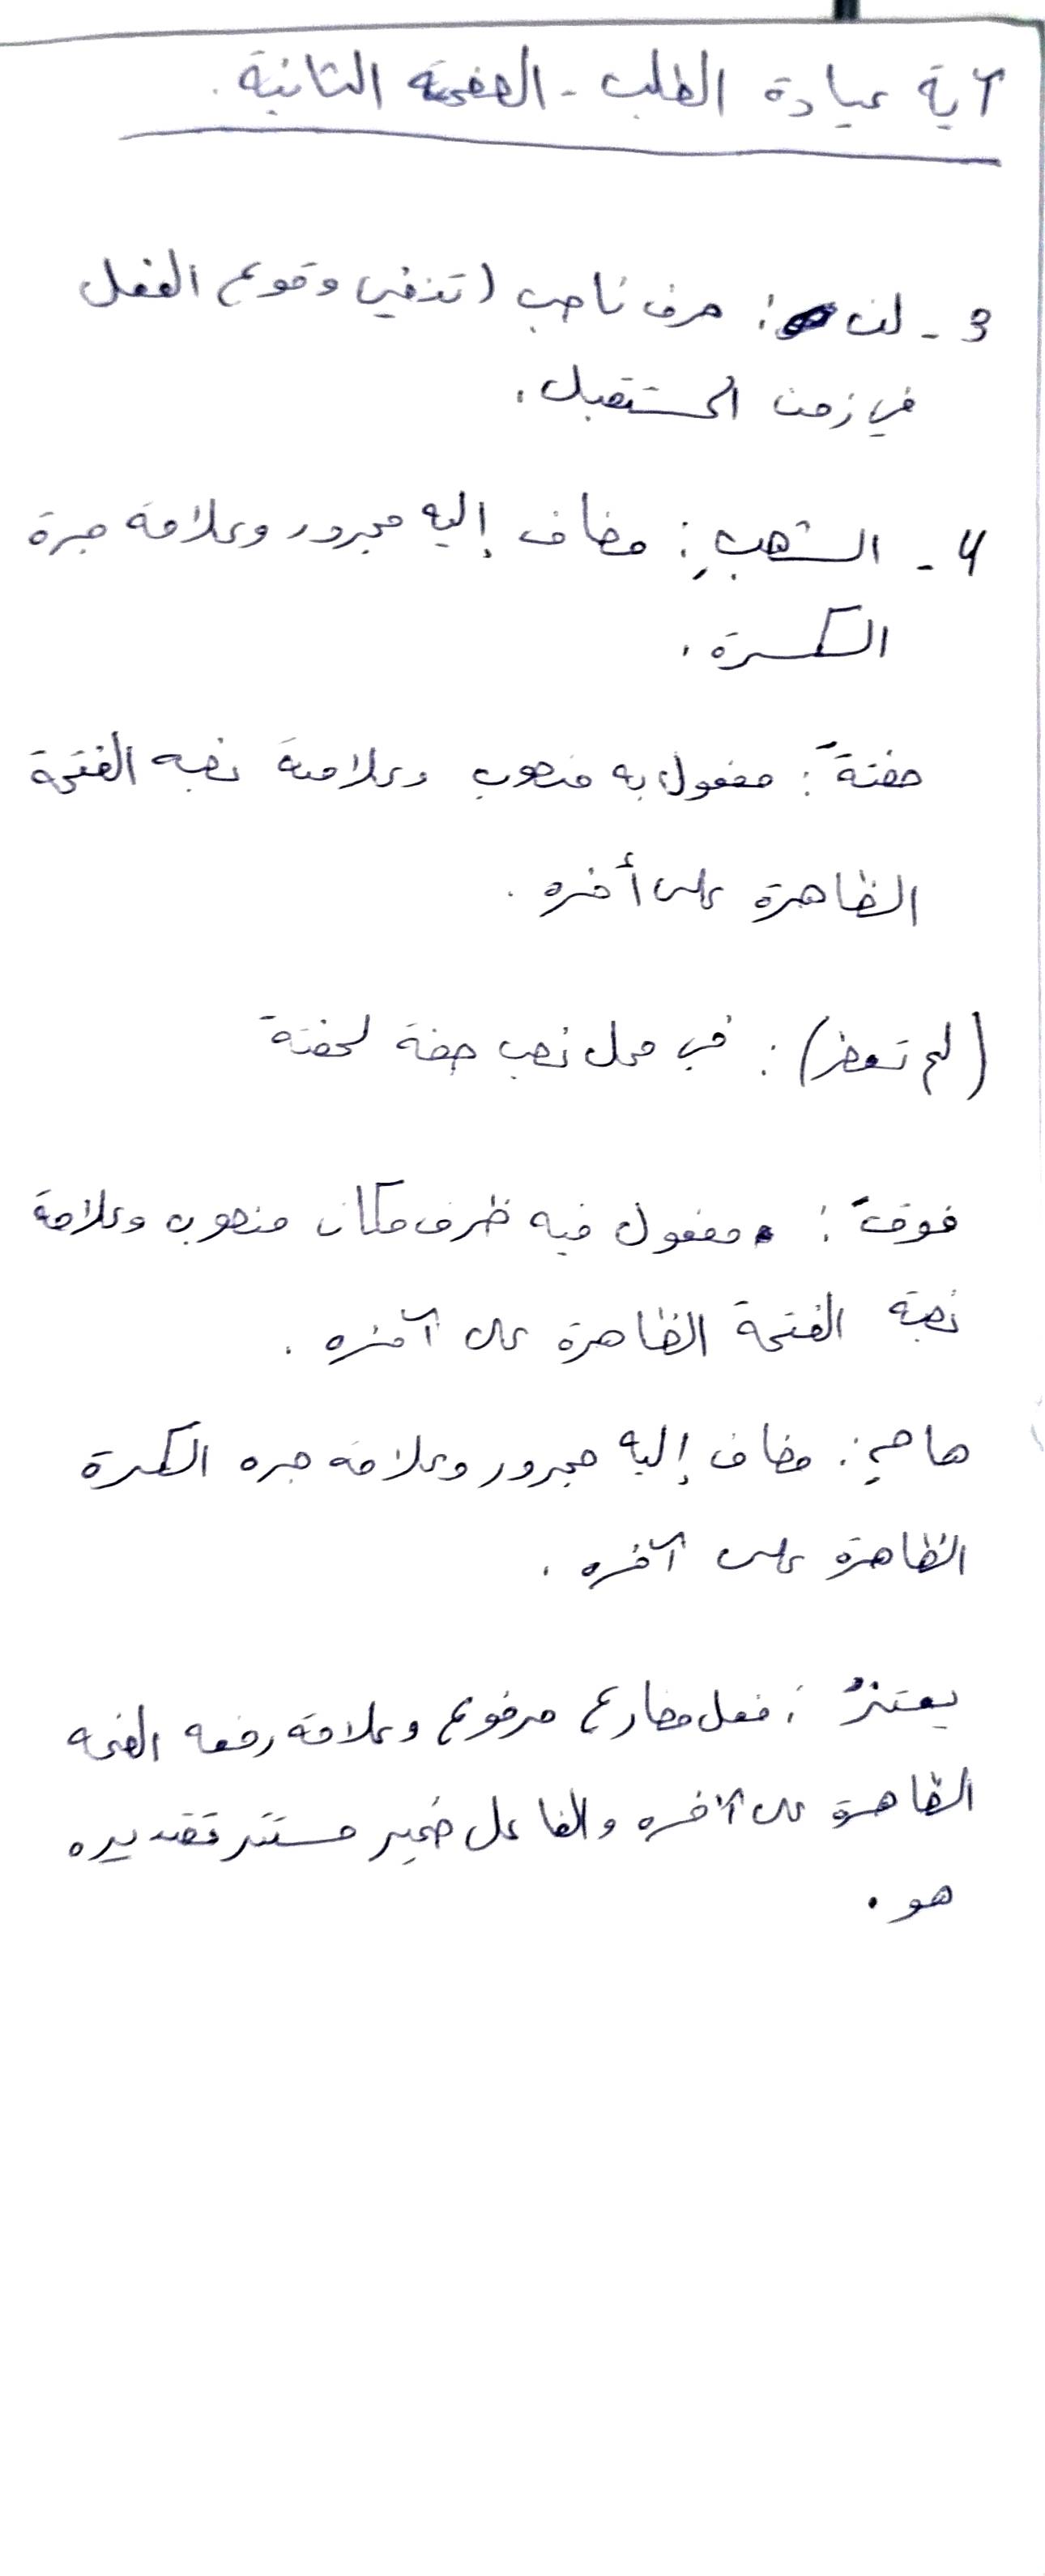 آية عبادة الطلب - الصفحة الثانية.
3 - لن : حرف ناصب (تنفي وقوع الفعل
في زمن المستقبل.
4 - الشهبِ : مضاف إليه مجرور وعلامة جرة
الكسرة .
حفنةً : مفعول به منصوب وعلامة نصبه الفتحة
الظاهرة على أخره .
(لم تعطر) : في محل نصب صفة لحفنةً
فوقَ : مفعول فيه ظرف مكان منصوب وعلامة
نصبة الفتحة الظاهرة على آخره .
هامِ : مضاف إليه مجرور وعلامة جره الكسرة
الظاهرة على آخره .
يعتزُ : فعل مضارع مرفوع وعلامة رفعه الضمه
الظاهرة على آخره والفاعل ضمير مستتر تقديره
هو .